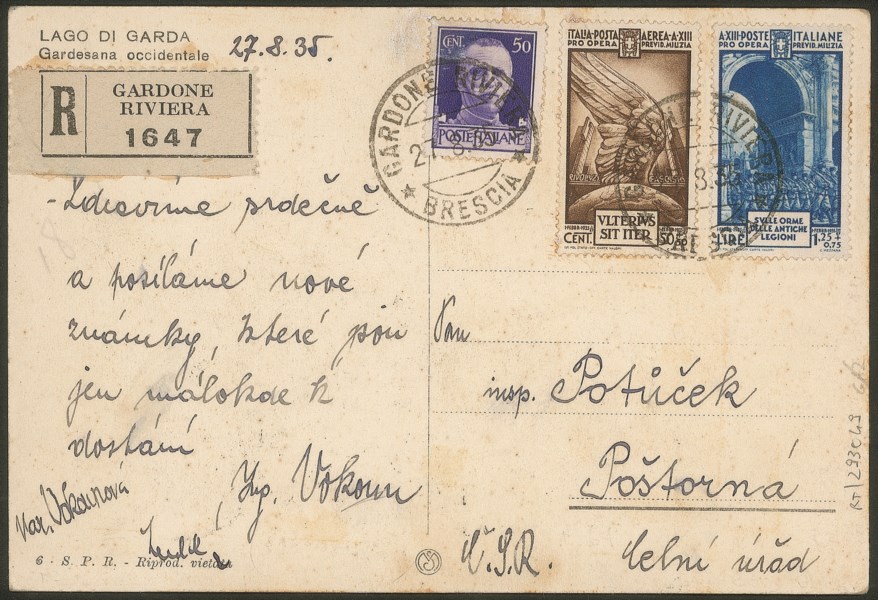 LAGO DI GARDA
Gardesana occidentale
27.8.35.
R
GARDONE
RIVIERA
1647
CENT. 50
POSTE ITALIANE
GARDONE RIVIERA
BRESCIA
ITALIA-POSTA AEREA-A·XIII
PRO OPERA PREVID. MILIZIA
VLTERIVS
SIT ITER
CENT.
A·XIII-POSTE ITALIANE
PRO OPERA PREVID. MILIZIA
SVLLE ORME
DELLE ANTICHE
LEGIONI
LIRE 1.25+
0.75
Zdravíme srdečně
a posíláme nové
známky, které jsou
jen málokde k
dostání
Ing. Vokoun
Mar. Vokounová
6 - S. P. R. - Riprod. vietata
Pan
insp. Potůček
Poštorná
Č.S.R. Celní úřad